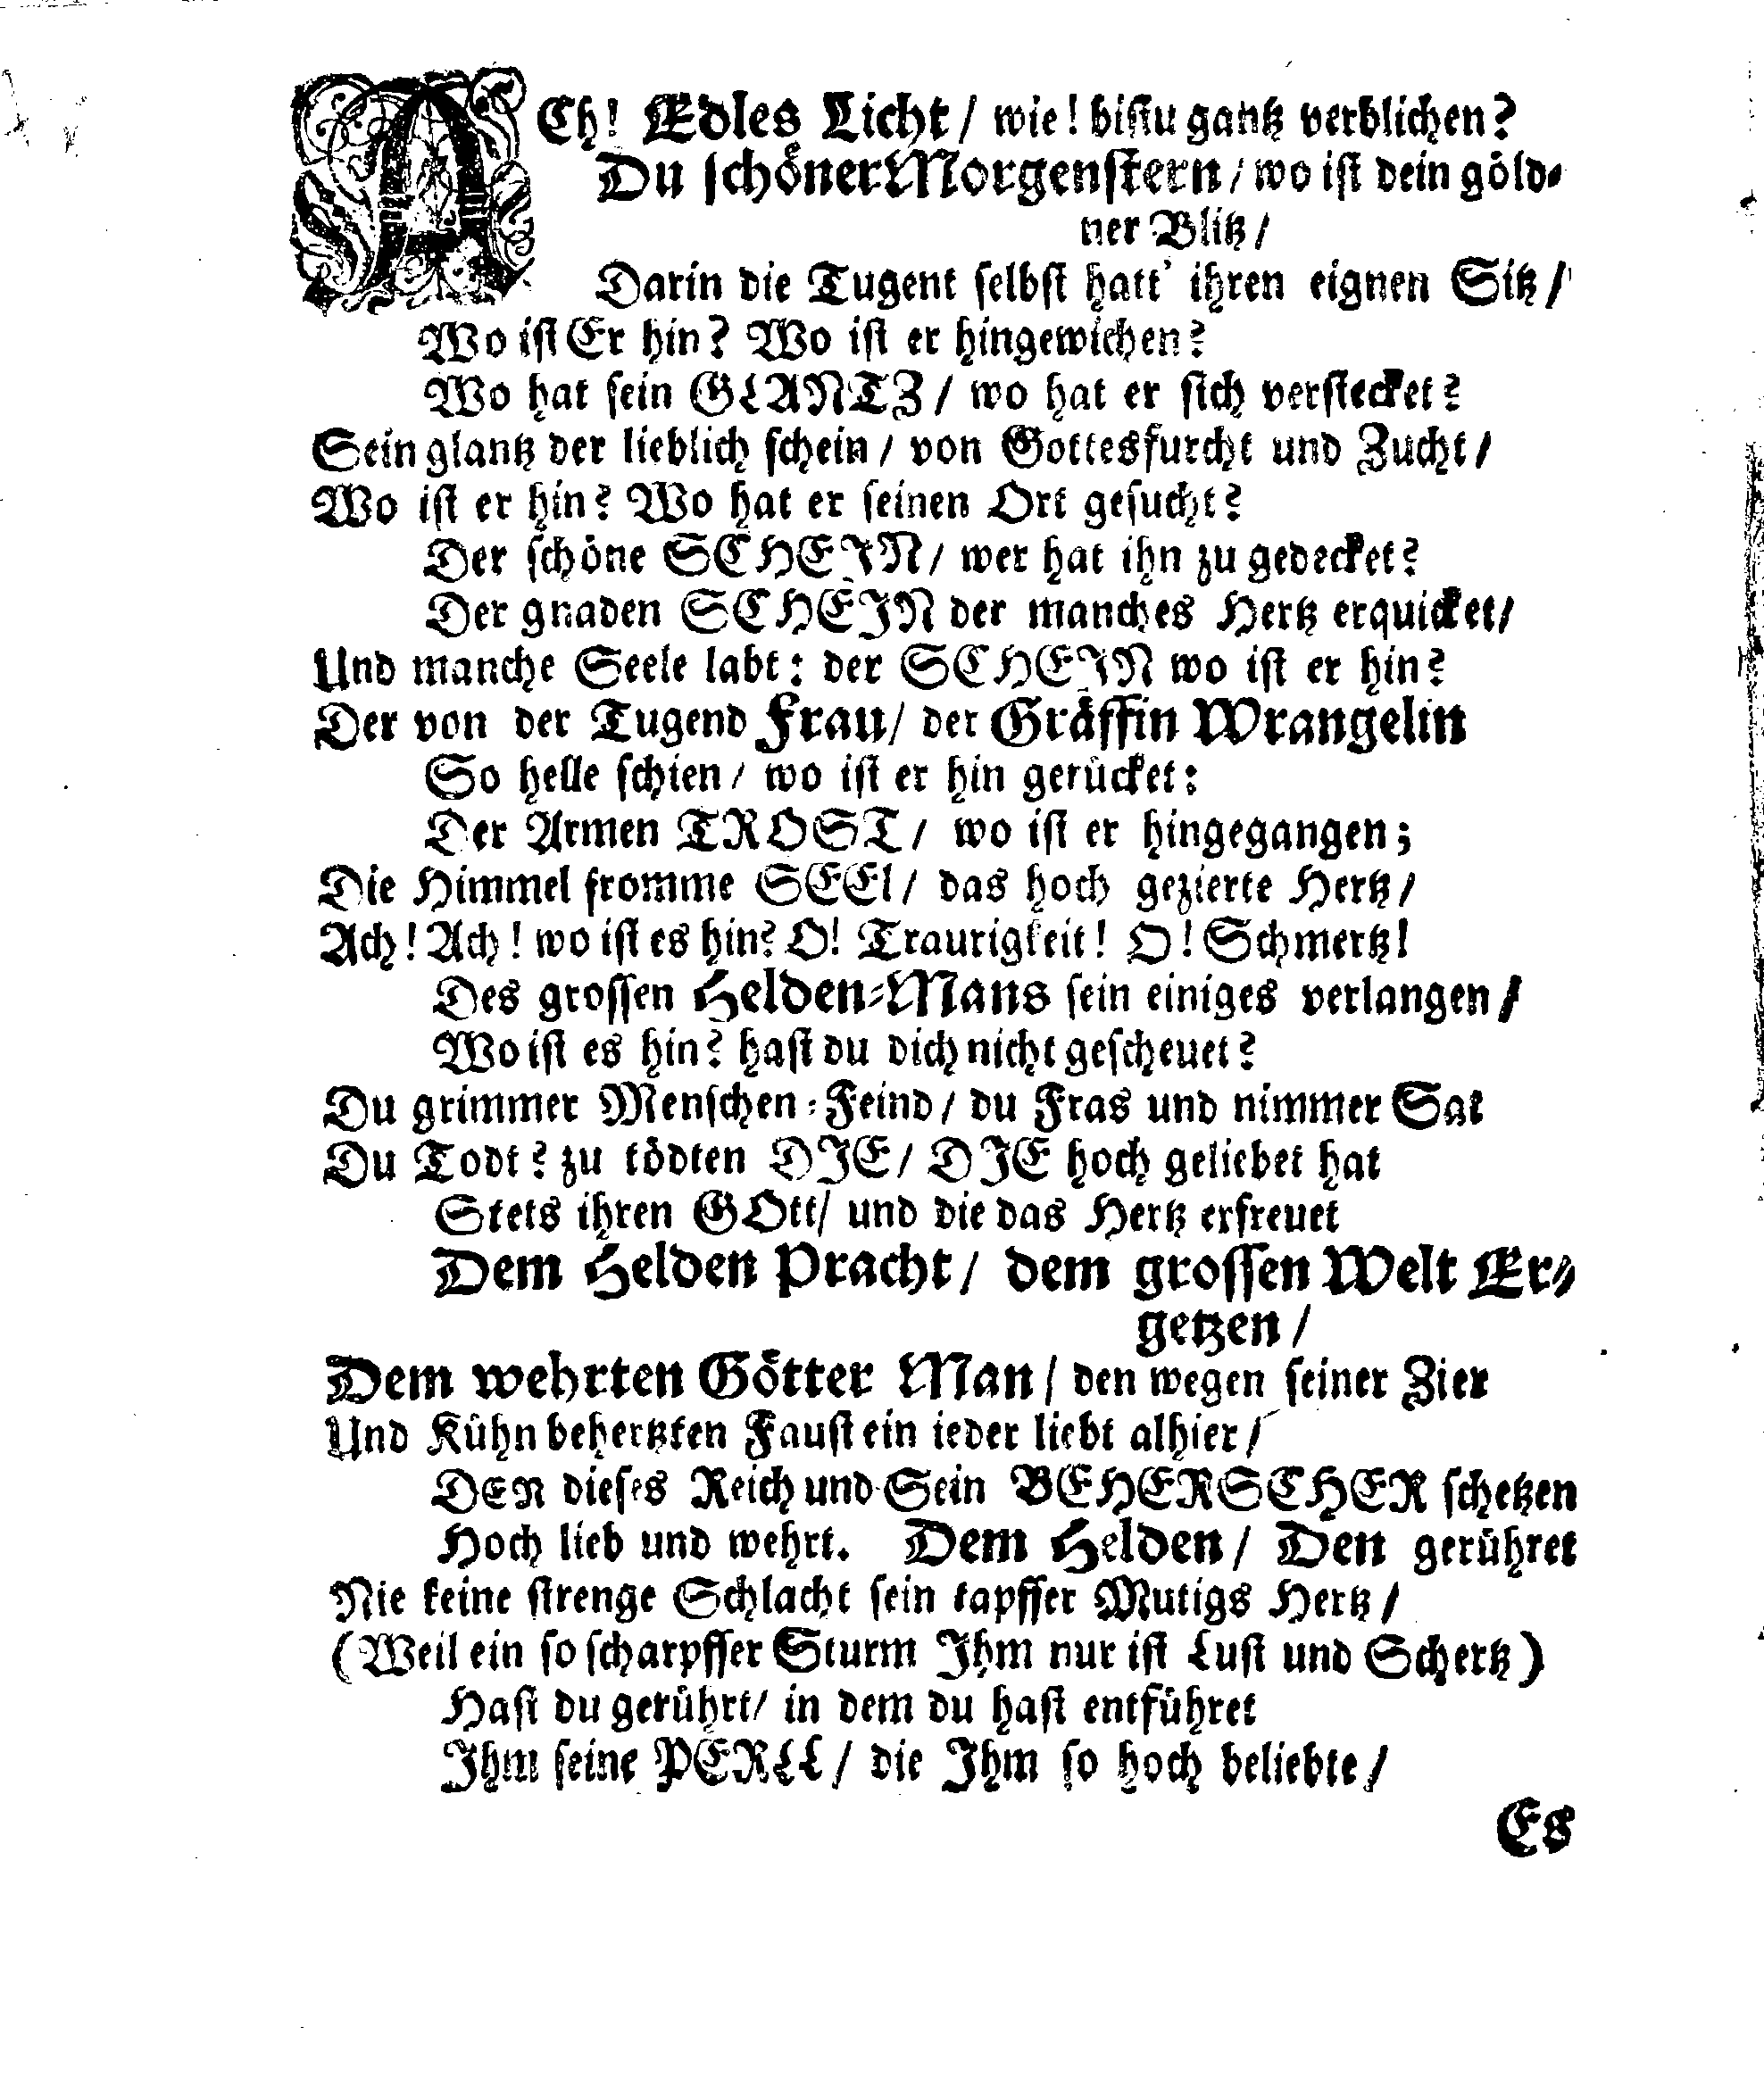 ACh! Edles Licht / wie! bistu gantz verblichen?
Du schöner Morgenstern / wo ist dein göld-
ner Blitz /
Darin die Tugent selbst hatt' ihren eignen Sitz /
Wo ist Er hin? Wo ist er hingewichen?
Wo hat sein GLANTZ / wo hat er sich verstecket?
Sein glantz der lieblich schein / von Gottesfurcht und Zucht /
Wo ist er hin? Wo hat er seinen Ort gesucht?
Der schöne SCHEIN / wer hat ihn zu gedecket?
Der gnaden SCHEIN der manches Hertz erquicket /
Und manche Seele labt: der SCHEIN wo ist er hin?
Der von der Tugend Frau / der Gräffin Wrangelin
So helle schien / wo ist er hin gerücket:
Der Armen TROST / wo ist er hingegangen;
Die Himmel fromme SEEl / das hoch gezierte Hertz /
Ach! Ach! wo ist es hin? O! Traurigkeit! O! Schmertz!
Des grossen Helden-Mans sein einiges verlangen /
Wo ist es hin? hast du dich nicht gescheuet?
Du grimmer Menschen-Feind / du Fras und nimmer Sat
Du Todt? zu tödten DIE / DIE hoch geliebet hat
Stets ihren GOtt / und die das Hertz erfreuet
Dem Helden Pracht / dem grossen Welt Er-
getzen /
Dem wehrten Götter Man / den wegen seiner Zier
Und Kühn behertzten Faust ein ieder liebt alhier /
DEN dieses Reich und Sein BEHERSCHER schetzen
Hoch lieb und wehrt. Dem Helden / Den gerühret
Nie keine strenge Schlacht sein tapffer Mutigs Hertz /
(Weil ein so scharpffer Sturm Ihm nur ist Lust und Schertz)
Hast du gerührt / in dem du hast entführet
Ihm seine PERLL / die Ihm so hoch beliebte /
Es